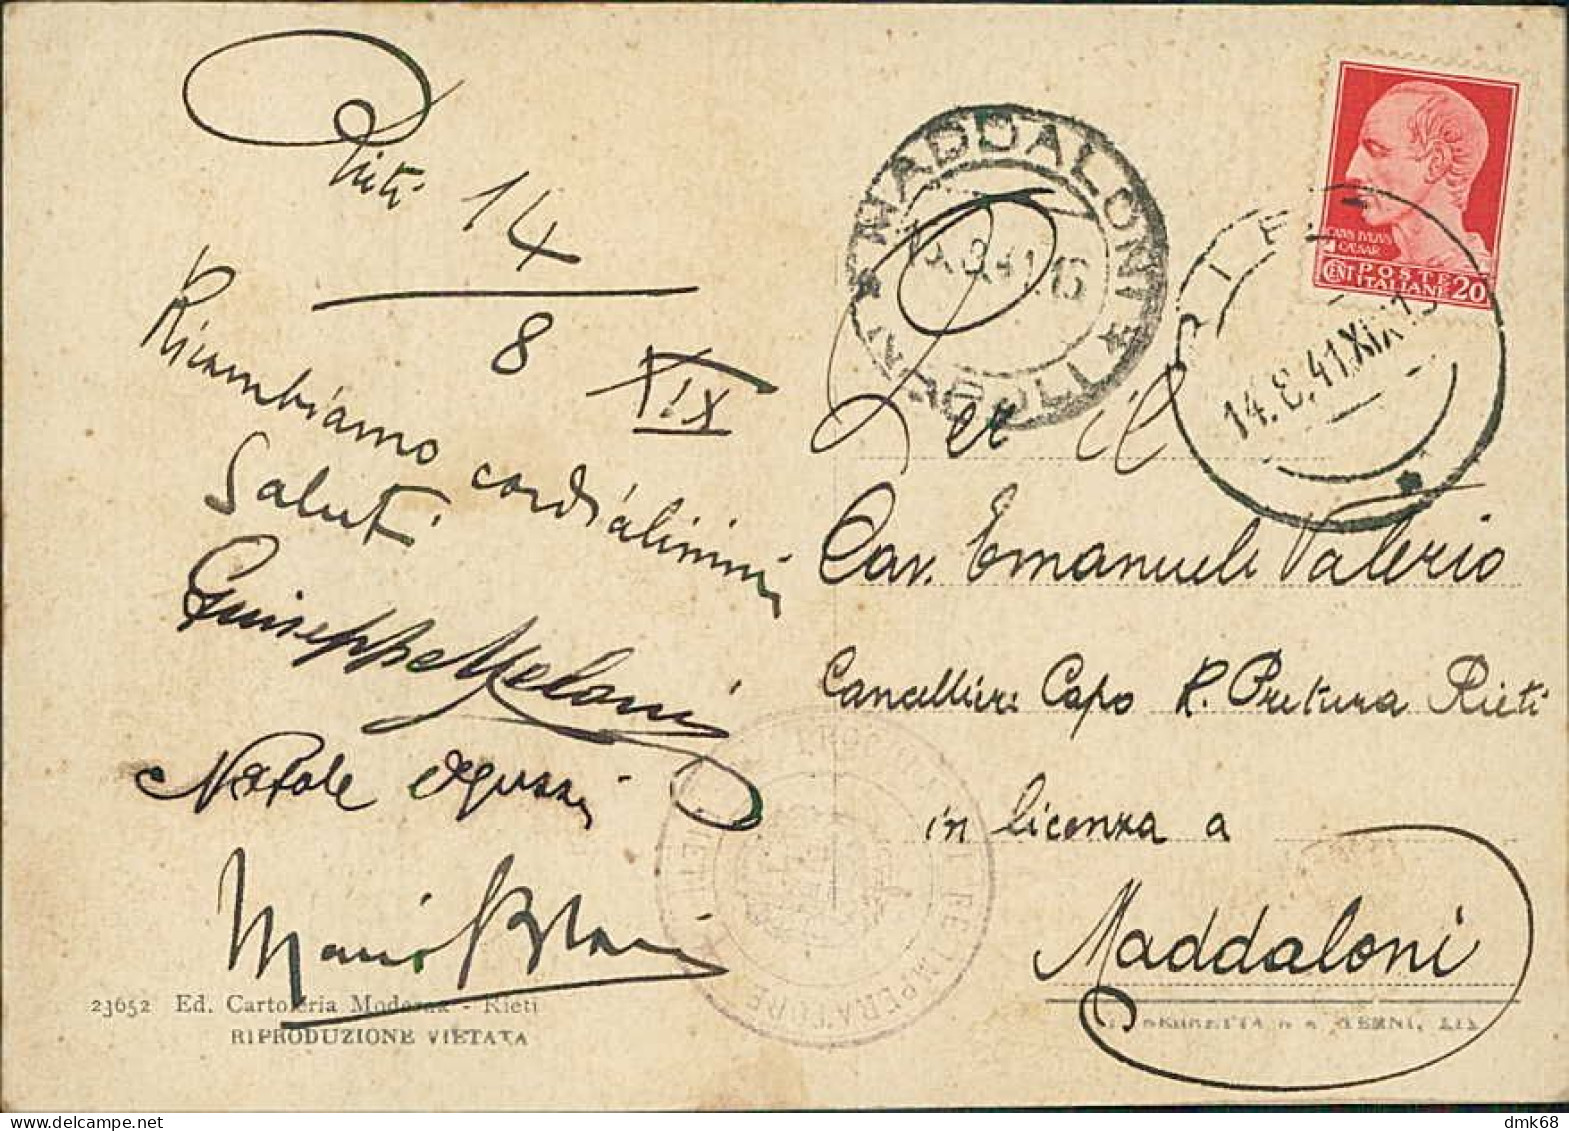 Rieti 14
8 XIX
Ricambiamo cordialissimi
Saluti
Giuseppe Meloni
Natale
Mario
23652 Ed. Cartoleria Moderna - Rieti
RIPRODUZIONE VIETATA
MADDALONI
NAPOLI
.8.41.16
CAIVS IVLIVS
CAESAR
POSTE
CENT ITALIANE 20
RIETI
14.8.41.XIX
Per il
Cav. Emanuele Valerio
Cancelliere Capo R. Pretura Rieti
in licenza a
Maddaloni
RE IMPERATORE
TERNI,
dmk68